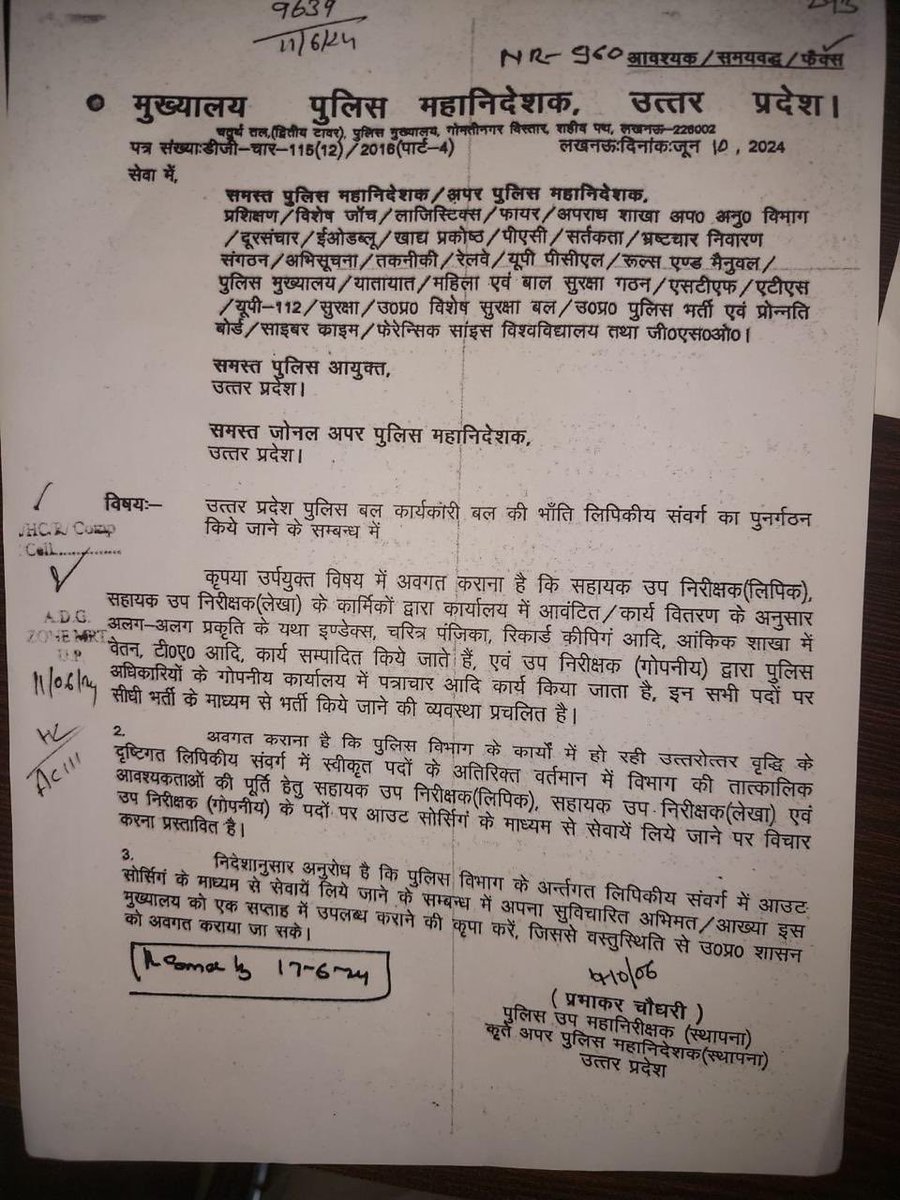 9639
11/6/24
NR- 960 आवश्यक/समयवद्ध/फैक्स
मुख्यालय पुलिस महानिदेशक, उत्तर प्रदेश।
चतुर्थ तल,(द्वितीय टावर), पुलिस मुख्यालय, गोमतीनगर विस्तार, शहीद पथ, लखनऊ-226002
पत्र संख्याःडीजी-चार-115(12)/2016(पार्ट-4) लखनऊःदिनांकःजून 10, 2024
सेवा में,
समस्त पुलिस महानिदेशक/अपर पुलिस महानिदेशक,
प्रशिक्षण/विशेष जॉच/लाजिस्टिक्स/फायर/अपराध शाखा अप0 अनु0 विभाग
/दूरसंचार/ईओडब्लू/खाद्य प्रकोष्ठ/पीएसी/सर्तकता/भ्रष्टचार निवारण
संगठन/अभिसूचना/तकनीकी/रेलवे/यूपी पीसीएल/रूल्स एण्ड मैनुवल/
पुलिस मुख्यालय/यातायात/महिला एवं बाल सुरक्षा गठन/एसटीएफ/एटीएस
/यूपी-112/सुरक्षा/उ0प्र0 विशेष सुरक्षा बल/उ0प्र0 पुलिस भर्ती एवं प्रोन्नति
बोर्ड/साइबर काइम/फेरेन्सिक सांइस विश्वविद्यालय तथा जी0एस0ओ0।
समस्त पुलिस आयुक्त,
उत्तर प्रदेश।
समस्त जोनल अपर पुलिस महानिदेशक,
उत्तर प्रदेश।
विषयः- उत्तर प्रदेश पुलिस बल कार्यकारी बल की भाँति लिपिकीय संवर्ग का पुनर्गठन
किये जाने के सम्बन्ध में
Comp
Cell
कृपया उर्पयुक्त विषय में अवगत कराना है कि सहायक उप निरीक्षक(लिपिक),
सहायक उप निरीक्षक(लेखा) के कार्मिकों द्वारा कार्यालय में आवंटित/कार्य वितरण के अनुसार
अलग-अलग प्रकृति के यथा इण्डेक्स, चरित्र पंजिका, रिकार्ड कीपिगं आदि, आंकिक शाखा में
वेतन, टी0ए0 आदि, कार्य सम्पादित किये जाते हैं, एवं उप निरीक्षक (गोपनीय) द्वारा पुलिस
अधिकारियों के गोपनीय कार्यालय में पत्राचार आदि कार्य किया जाता है, इन सभी पदों पर
सीधी भर्ती के माध्यम से भर्ती किये जाने की व्यवस्था प्रचलित है।
A.D.G.
ZONE MRT
U.P
11/06/24
2. अवगत कराना है कि पुलिस विभाग के कार्यो में हो रही उत्तरोत्तर वृद्धि के
दृष्टिगत लिपिकीय संवर्ग में स्वीकृत पदों के अतिरिक्त वर्तमान में विभाग की तात्कालिक
आवश्यकताओं की पूर्ति हेतु सहायक उप निरीक्षक(लिपिक), सहायक उप निरीक्षक(लेखा) एवं
उप निरीक्षक (गोपनीय) के पदों पर आउट सोर्सिगं के माध्यम से सेवायें लिये जाने पर विचार
करना प्रस्तावित है।
3. निदेशानुसार अनुरोध है कि पुलिस विभाग के अर्न्तगत लिपिकीय संवर्ग में आउट
सोर्सिगं के माध्यम से सेवायें लिये जाने के सम्बन्ध में अपना सुविचारित अभिमत/आख्या इस
मुख्यालय को एक सप्ताह में उपलब्ध कराने की कृपा करें, जिससे वस्तुस्थिति से उ0प्र0 शासन
को अवगत कराया जा सके।
17-6-24
( प्रभाकर चौधरी )
पुलिस उप महानिरीक्षक (स्थापना)
कृते अपर पुलिस महानिदेशक(स्थापना)
उत्तर प्रदेश